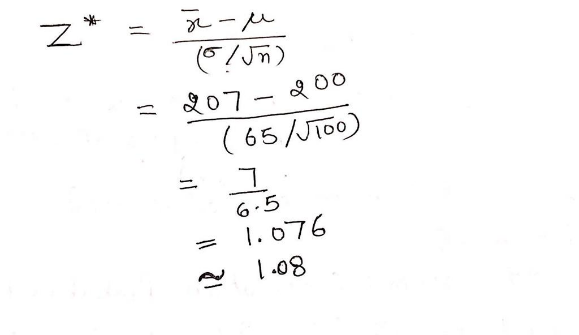 Z* = (x̄ − μ) / (σ/√n)
= (207 − 200) / (65/√100)
= 7 / 6.5
= 1.076
≃ 1.08